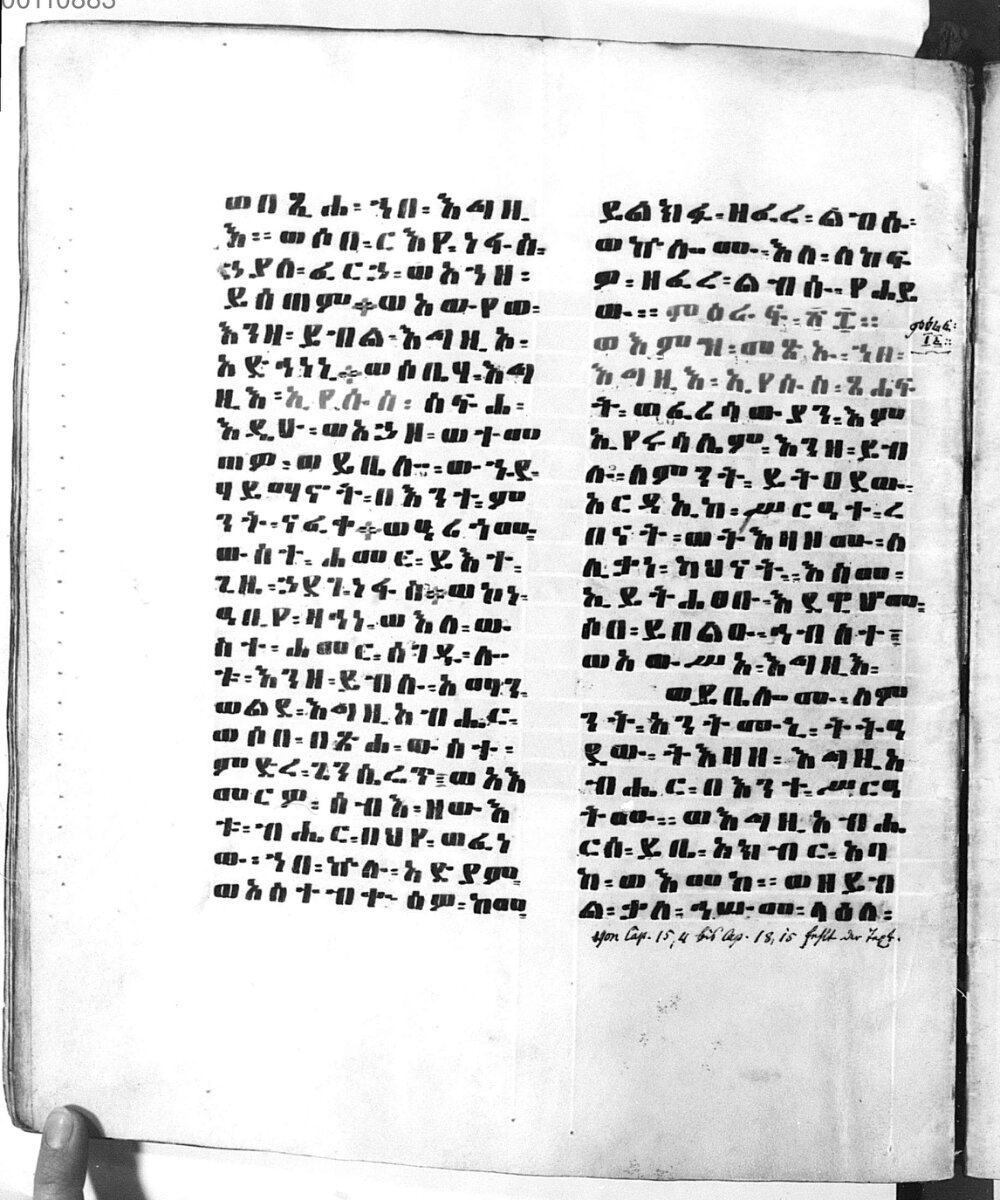 ወበጺሖ፡ ኀበ፡ እግዚ
እ፡፡ ወሶበ፡ ርእየ፡ ነፋሰ፡
ኃያለ፡ ፈርኃ፡ ወአኀዘ፡
ይሰጠም፡ ወአውየወ፡
እንዘ፡ ይብል፡ እግዚአ፡
አድኅነኒ፡ ወሶቤሃ፡ እግ
ዚእ፡ ኢየሱስ፡ ሰፍሐ፡
እዴሁ፡ ወአኃዘ፡ ወተመ
ጠዎ፡ ወይቤሎ፡ ውኁደ፡
ሃይማኖት፡ በእንተ፡ ም
ንት፡ ናፈቀ፡
ውስተ፡ ሐመር፡ ይእተ፡
ጊዜ፡ ኃደገ፡ ነፋስ፡ ወኮነ፡
ዓቢየ፡ ዛኅነ፡ ወእለ፡ ው
ስተ፡ ሐመር፡ ሰገዱ፡ ሎ
ቱ፡ እንዘ፡ ይብሉ፡ አማን፡
ወልደ፡ እግዚአብሔር፡
ወሶበ፡ በጽሐ፡ ውስተ፡
ምድረ፡ ጌንሴሬጥ፡ ወአእ
መርዎ፡ ሰብአ፡ ዘውእ
ቱ፡ ብሔር፡ በህየ፡ ወፈነ
ው፡ ኀበ፡ ኵሉ፡ አድያም፡
ወአስተብቍዕዎ፡ ከመ
ይልክፉ፡ ዘፈረ፡ ልብሱ፡
ወኵሎሙ፡ እለ፡ ለከፍ
ዎ፡ ዘፈረ፡ ልብሱ፡ የሐይ
ው፡፡ ምዕራፍ፡ ፳፪፡፡
ምዕራፍ፡
፲፭፡፡
ወእምዝ፡ መጽኡ፡ ኀበ፡
እግዚእ፡ ኢየሱስ፡ ጸሐፍ
ት፡ ወፈረሳውያን፡ እም
ኢየሩሳሌም፡ እንዘ፡ ይብ
ሉ፡ ለምንት፡ ይትዐደው፡
አርዳኢከ፡ ሥርዓተ፡ ረ
በናት፡ ወትእዛዘ፡
ሊቃነ፡ ካህናት፡ እስመ፡
ኢይትሐፀቡ፡ እደዊሆሙ፡
ሶበ፡ ይበልዑ፡ ኅብስተ፡
ወአውሥአ፡ እግዚእ፡
ወይቤሎሙ፡ ለም
ንት፡ አንትሙኒ፡ ትትዓ
ደው፡ ትእዛዘ፡ እግዚአ
ብሔር፡ በእንተ፡ ሥርዓ
ትክሙ፡፡ ወእግዚአብሔ
ርሰ፡ ይቤ፡ አክብር፡ አባ
ከ፡ ወእመከ፡፡ ወዘይብ
ል፡ ቃለ፡ ኅሡመ፡ ላዕለ፡
Von Cap. 15,4 bis Cap. 18,15 fehlt der Text.